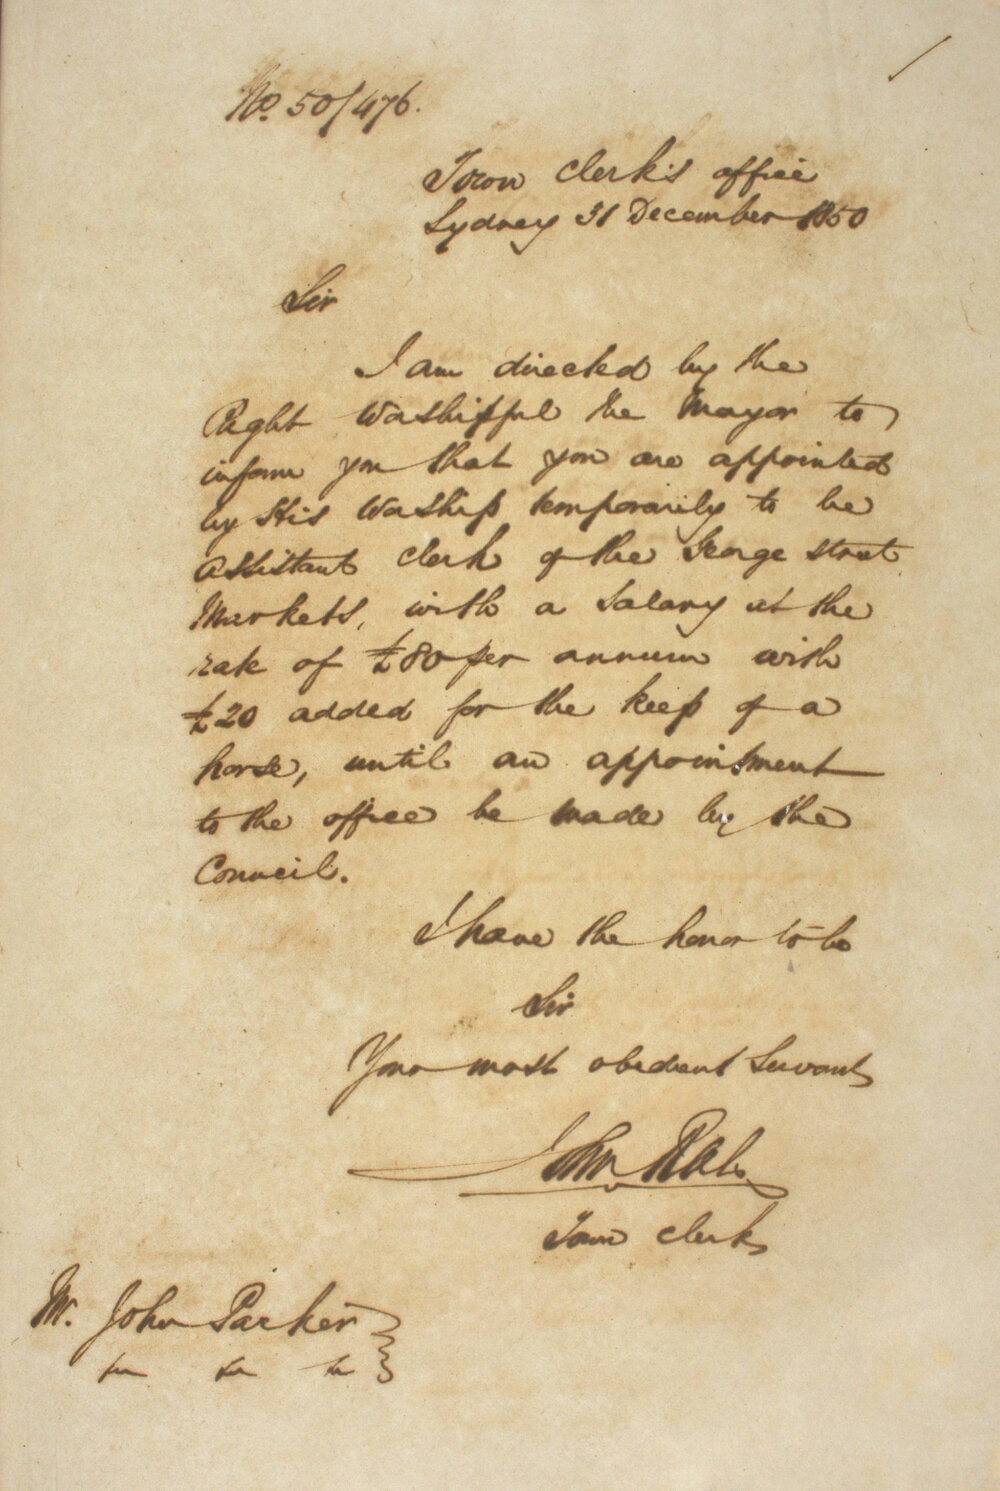 No. 50/476.
Town Clerk's office
Sydney 31 December 1850
Sir
I am directed by the
Right Worshipful the Mayor to
inform you that you are appointed
by His Worship temporarily to be
Assistant Clerk of the George Street
Markets, with a Salary at the
rate of £80 per annum with
£20 added for the keep of a
horse, until an appointment
to the office be made by the
Council.
I have the honor to be
Sir
Your most obedient Servant
John Rae
Town Clerk
Mr. John Parker